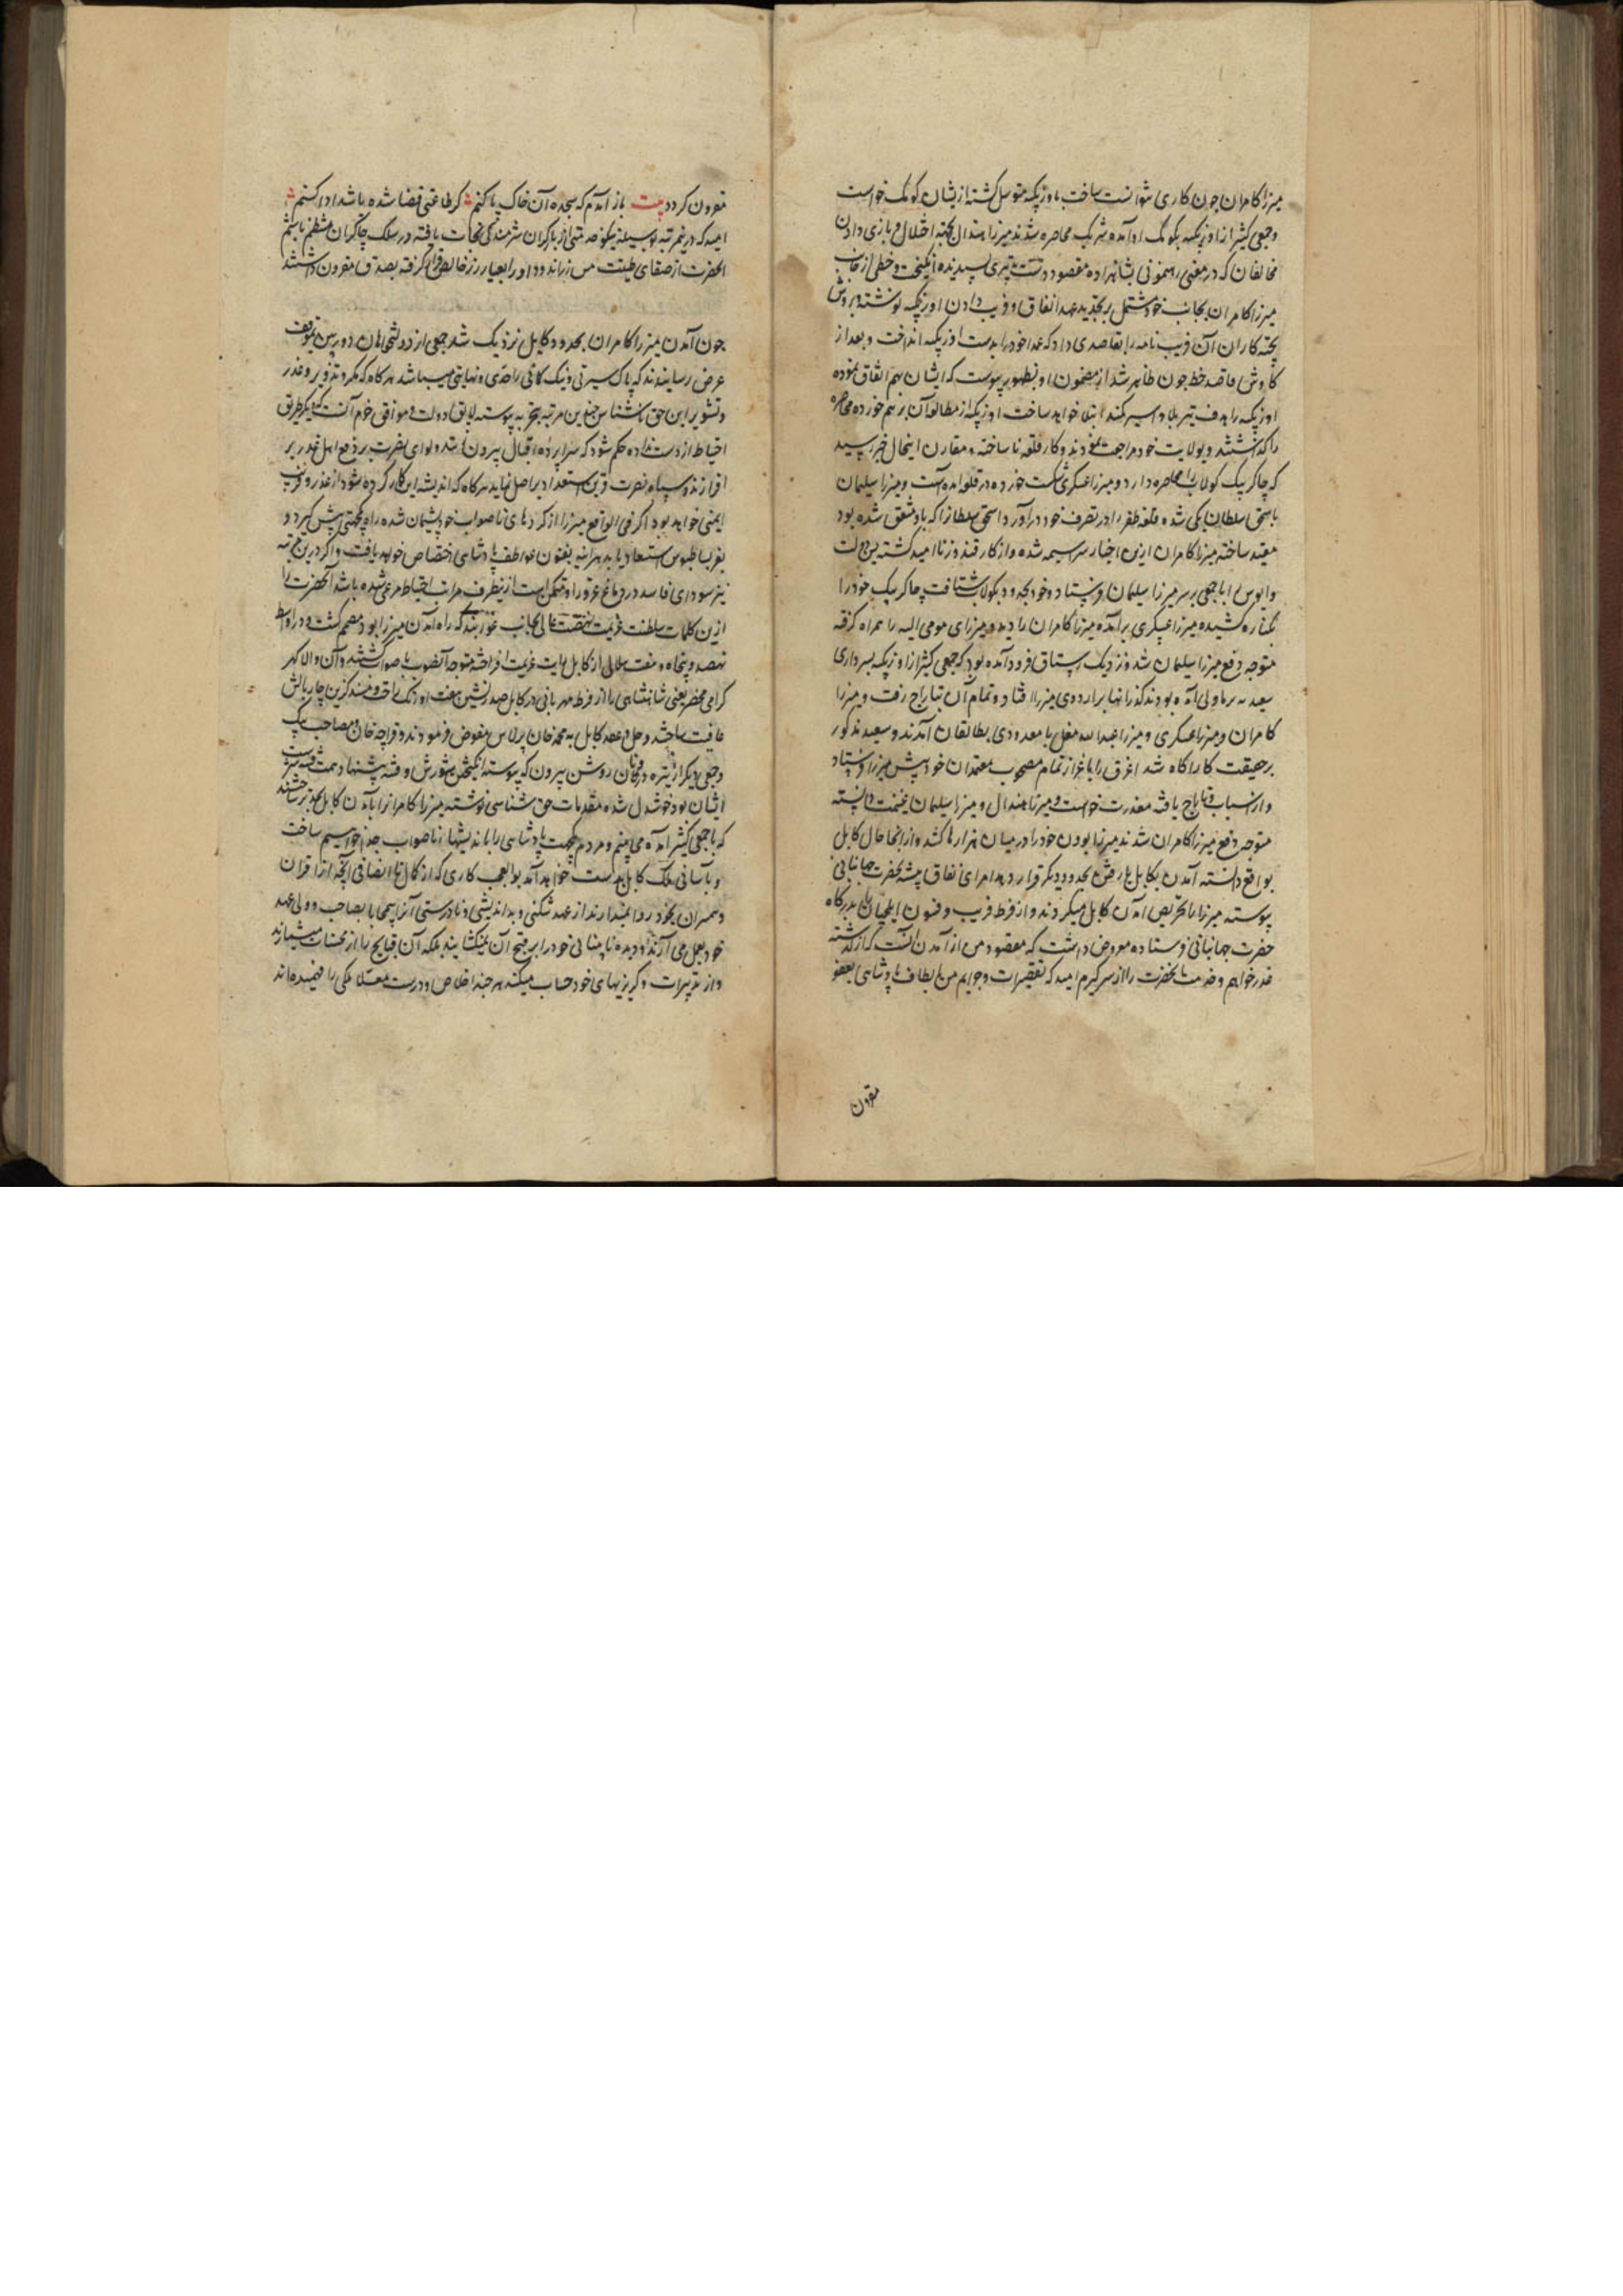 میرزا کامران چون کاری نتوانست ساخت باوزبکیه متوسل گشته ازیشان کومک خواست
وجمعی کثیر از اوزبکیه بکومک او آمده شریک محاصره شدند میرزا هندال بجهة اخلال و بازی دادن
مخالفان که در معنی رهنمونی بشاهراه مقصود دست تدبیری پسندیده انگیخت و خطی از جانب
میرزا کامران بجانب خود مشتمل بر تجدید عهد اتفاق و فریب دادن اوزبکیه نوشته بروش
پخته کاران آن فریب نامه را بقاصدی داد که عمدا خود را بدست اوزبکیه انداخت و بعد از
کاوش قاصد خط چون ظاهر شد از مضمون او بظهور پیوست که ایشان بهم اتفاق نموده
اوزبکیه را هدف تیر بلا و اسیر کمند ابتلا خواهند ساخت اوزبکیه از مطالعه آن برهم خورده محاصره
را گذاشتند و بولایت خود مراجعت نمودند و کار قلعه ناساخته مقارن اینحال خبر رسید
که چاکر بیک کولاب را محاصره دارد و میرزا عسکری شکست خورده در قلعه آمده است و میرزا سلیمان
باسحق سلطان یکی شده قلعه ظفر را در تصرف خود درآورد و اسحق سلطانرا که باو متفق شده بود
مقید ساخته میرزا کامران ازین اخبار سراسیمه شده و از کار قندوز ناامید گشته یسن دولت
و بابوس را با جمعی بر سر میرزا سلیمان فرستاد و خود بجهود بکولاب شتافت چاکر بیک خود را
بکناره کشیده میرزا عسکری برآمده میرزا کامران را دید و میرزای مومی الیه را همراه گرفته
متوجه دفع میرزا سلیمان شد و نزدیک رستاق فرود آمده بود که جمعی کثیر از اوزبکیه بسرداری
سعید بربر ماولی آمده بودند گذر آنها بر اردوی میرزا افتاد و تمام آن بتاراج رفت و میرزا
کامران و میرزا عسکری و میرزا عبدالله مغل با معدودی بطالقان آمدند و سعید مذکور
بر حقیقت کار آگاه شد اغرق را باعزاز تمام مصحوب معتمدان خود پیش میرزا فرستاد
و از اسباب تاراج یافته معذرت خواست و میرزا هندال و میرزا سلیمان غنیمت دانسته
متوجه دفع میرزا کامران شدند میرزا بودن خود را در میان هزارها کشد و از آنجا حال کابل
بواقع دانسته آمدن بکابل یا رفتن بحدود دیگر قرار دهد امرای نفاق پیشه حضرت جهانبانی
پیوسته میرزا را تحریص آمدن کابل میکردند و از فرط فریب و فسون ایلچیان بدرگاه
حضرت جهانبانی فرستاده معروض داشت که مقصود من از آمدن آنست که از گذشته
عذر خواهم و خدمت حضرت را از سر گیرم امید که تقصیرات و جرایم من بالطاف پادشاهی بعفو
مقرون
مقرون گردد بیت باز آمدم که سجده آن خاک پا کنم گر طاعتی قضا شده باشد ادا کنم
امید که درین مرتبه بوسیله نیکو خدمتی از بار گران شرمندگی نجات یافته در سلک چاکران منتظم باشم
آنحضرت از صفای طینت مس زراندود او را بعیار زر خالص گرفته بصدق مقرون داشتند
چون آمدن میرزا کامران بحدود کابل نزدیک شد جمعی از دولتخواهان دوربین بموقف
عرض رسانیدند که پاک سیرتی و نیک گمانی را حدی و نهایتی میباشد هرگاه که مکر و تزویر و غدر
و تشویر این حق ناشناس چندین مرتبه بتجربه پیوسته لایق دولت و موافق حزم آنست که طریق
احتیاط از دست نداده حکم شود که سراپرده اقبال بیرون زنند و لوای نصرت بر دفع اهل غدر بر
افرازند و سپاه نصرت قرین استعداد بر اصل نماید هرگاه که اندیشه این کار کرده شود از غدر و فریب
ایمنی خواهد بود اگر فی الواقع میرزا از کردهای ناصواب خود پشیمان شده راه یکجهتی پیش گیرد و
بفر بساطبوس استسعاد یابد هر آینه بفنون عواطف پادشاهی اختصاص خواهد یافت و اگر درین مرتبه
نیز سودای فاسد در دماغ غرور او متمکن است ازین طرف مراتب احتیاط مرعی شده باشد آنحضرت را
ازین کلمات سلطنت عزیمت نهضت عالی بجانب غوربند که راه آمدن میرزا بود مصمم گشت و در اواسط
نهصد و پنجاه و هفت هلالی از کابل رایات عزیمت افراخته متوجه آنصوب باصواب گشتند و آن والا گهر
گرامی محضر یعنی شاهنشاهی را از فرط مهربانی در کابل صدرنشین هفت اورنگ خلافت و مسند گزین چاربالش
عاقبت ساختند و حل و عقد کابل به محمد خان برلاس مفوض فرمودند و قراچه خان و مصاحب بیک
وجمعی دیگر از تیره درونان روشن بیرون که پیوسته انگیختن شورش و فتنه پیشنهاد همت فتنه سرشت
ایشان بود خوشدل شده مقدمات حق شناسی نوشته میرزا کامرانرا بآمدن کابل برساختند
که با جمعی کثیر آمده می بینم و مردم یکجهت پادشاهی را باندیشهای ناصواب جدا خواهیم ساخت
و بآسانی ملک کابل بدست خواهد آمد بوالعجب کاری که از کمال ناانصافی آنچه از اقران
و همسران بخود روا نمیدارند از عهد شکنی و بداندیشی و نادرستی آنرا بیمحابا بصاحب و ولی عهد
خود بعمل می آرند و دیده نابینائی خود را بر قبح آن نمیگشایند بلکه آن قبایح را از محسنات میشمارند
و از تدبیرات و گربزیهای خود حساب میکنند هر چند اخلاص و درست معاملگی را فهمیده اند